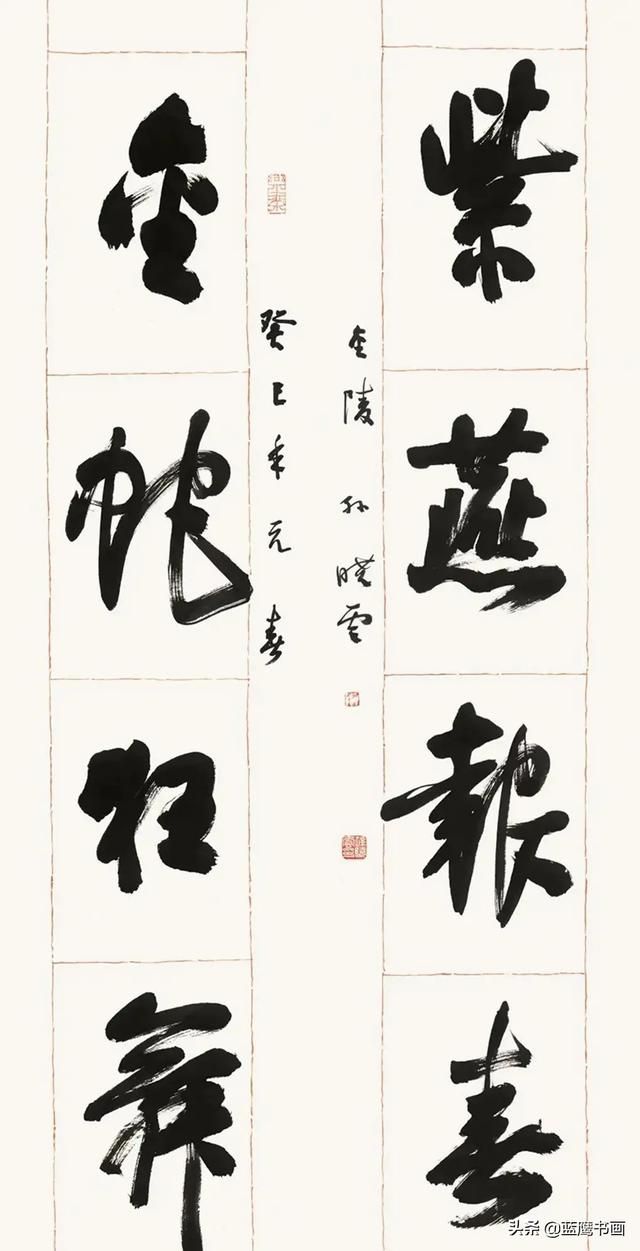 紫燕報春
金陵孫曉雲
癸巳年元春
金蛇狂舞
头条 @蓝鹰书画